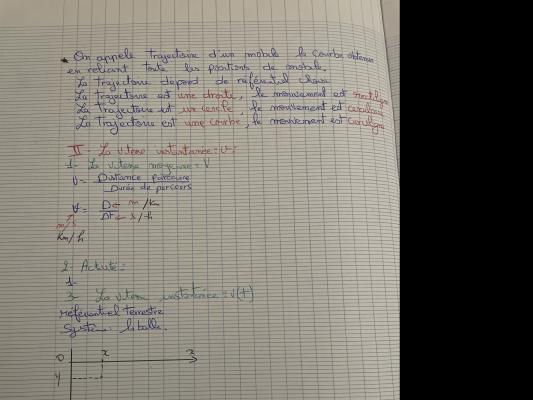 * On appele trajectoire d'un mobile la courbe obtenue
en reliant toute les positions de mobile.
La trajectoire dépend de référentiel choisi
La trajectoire est une droite, le mouvement est rectiligne
La trajectoire est un cercle, le mouvement est circulaire
La trajectoire est une courbe, le mouvement est curviligne
II - La vitesse instantanée: v:
1- La vitesse moyenne = V
V = Distance parcourue
Durée de parcours
V = D ← m /km
Δt ← s /h
m/s
km/h
2- Activité:
1-
3- La vitesse instantanée = v(t)
référentiel Terrestre
Système: la balle.
0 x x
y